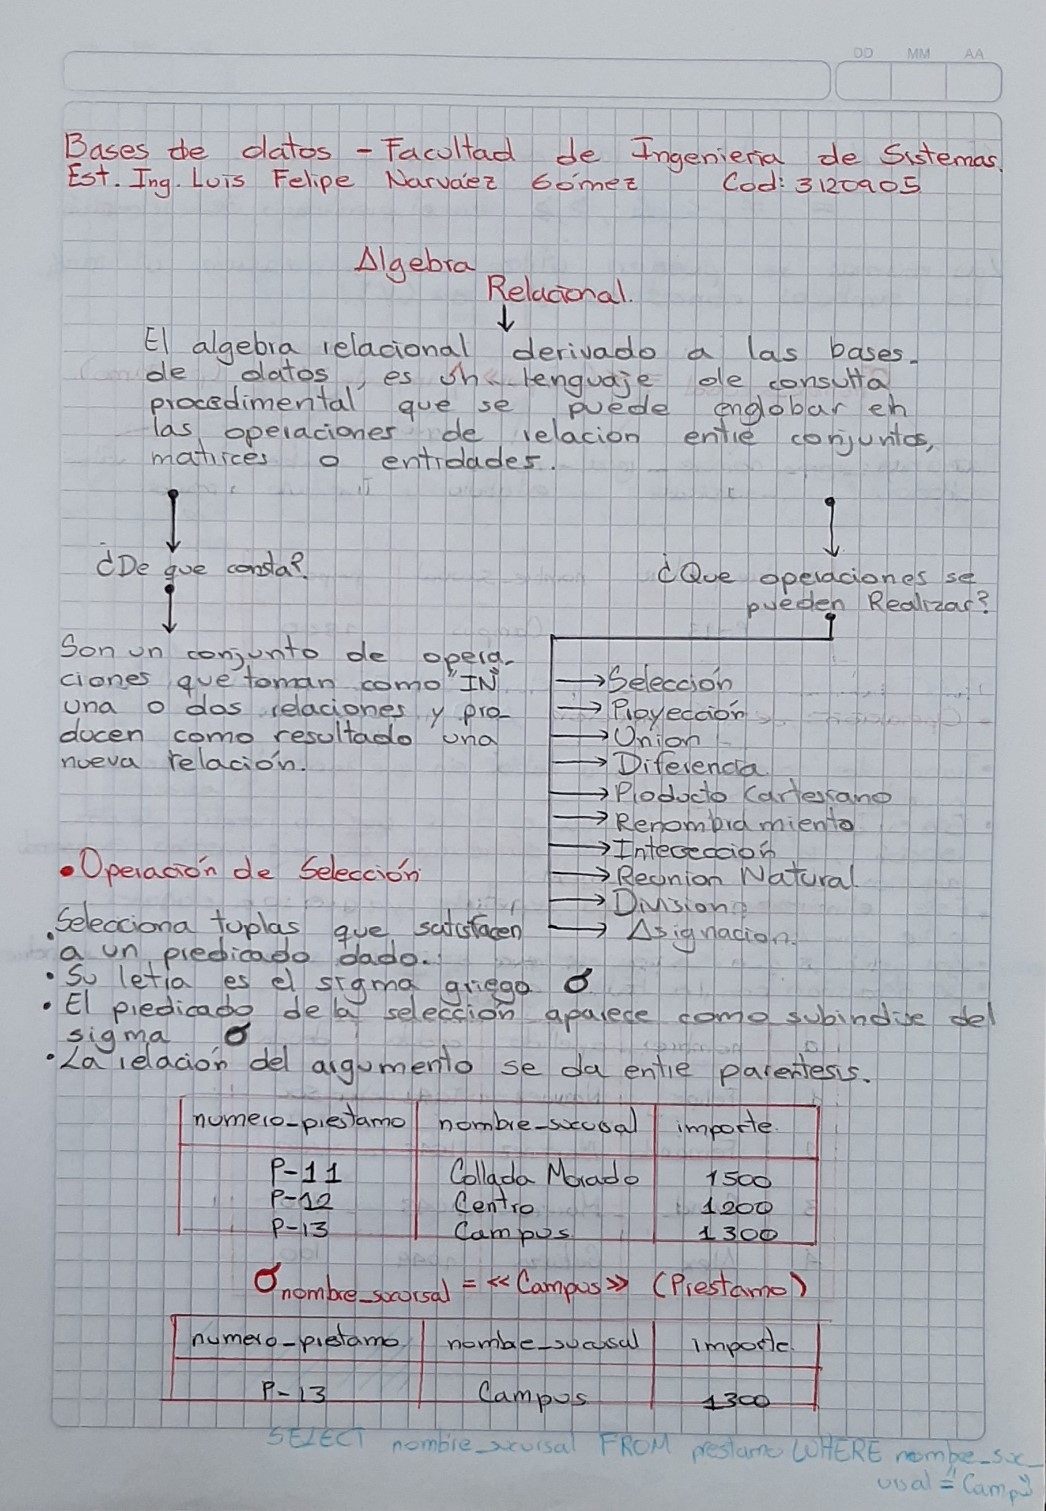 DD MM AA
Bases de datos - Facultad de Ingenieria de Sistemas.
Est. Ing. Luis Felipe Narváez Gómez Cod: 3120905
Algebra
Relacional.
El algebra relacional derivado a las bases
de datos, es un lenguaje de consulta
procedimental que se puede englobar en
las operaciones de relacion entre conjuntos,
matrices o entidades.
¿De que consta?
¿Que operaciones se
pueden Realizar?
Son un conjunto de opera-
ciones que toman como "IN"
una o dos relaciones y pro-
ducen como resultado una
nueva relación.
→ Selección
→ Proyección
→ Union
→ Diferencia
→ Producto Cartesiano
→ Renombramiento
→ Interseccion
→ Reunion Natural
→ Division
→ Asignacion.
• Operación de Selección
• Selecciona tuplas que satisfacen
a un predicado dado.
• Su letra es el sigma griego σ
• El predicado de la selección aparece como subindise del
sigma σ
• La relación del argumento se da entre parentesis.
numero_prestamo nombre_sucusal importe.
P-11 Collada Morado 1500
P-12 Centro 1200
P-13 Campus 1300
σ nombre_sucursal = «Campus» (Prestamo)
numero_pretamo nombae_sucusal importe.
P-13 Campus 1300
SELECT nombre_sucursal FROM prestamo WHERE nombre_suc_
ursal = "Camp"